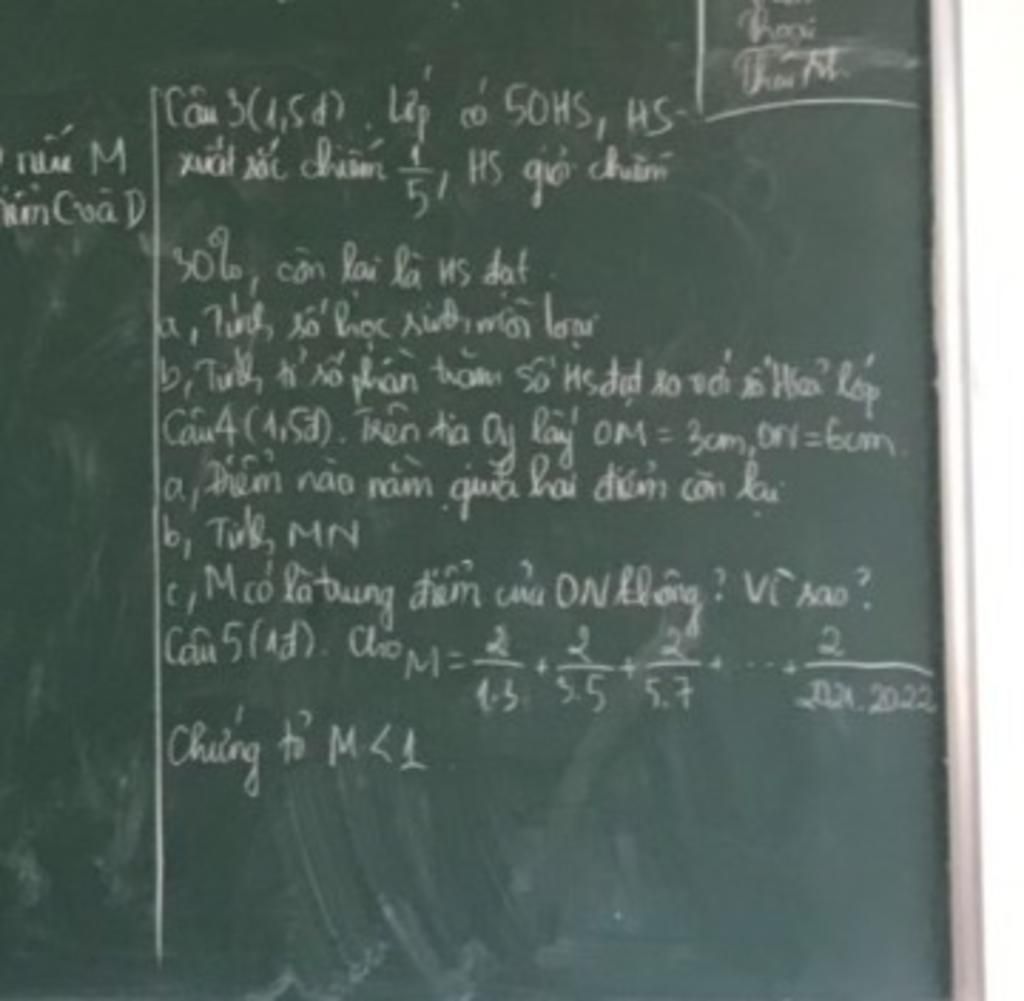 Thoại
nếu M
C và D
Câu 3 (1,5đ). Lớp có 50HS, HS
xuất sắc chiếm 1/5, HS giỏi chiếm
30%, còn lại là HS đạt.
a, Tính số học sinh mỗi loại
b, Tính tỉ số phần trăm số HS đạt so với số HS cả lớp
Câu 4 (1,5đ). Trên tia Oy lấy OM = 3cm, ON = 6cm.
a, Điểm nào nằm giữa hai điểm còn lại
b, Tính MN
c, M có là trung điểm của ON không? Vì sao?
Câu 5 (1đ). Cho M = 2/1.3 + 2/3.5 + 2/5.7 + ... + 2/2021.2022
Chứng tỏ M < 1